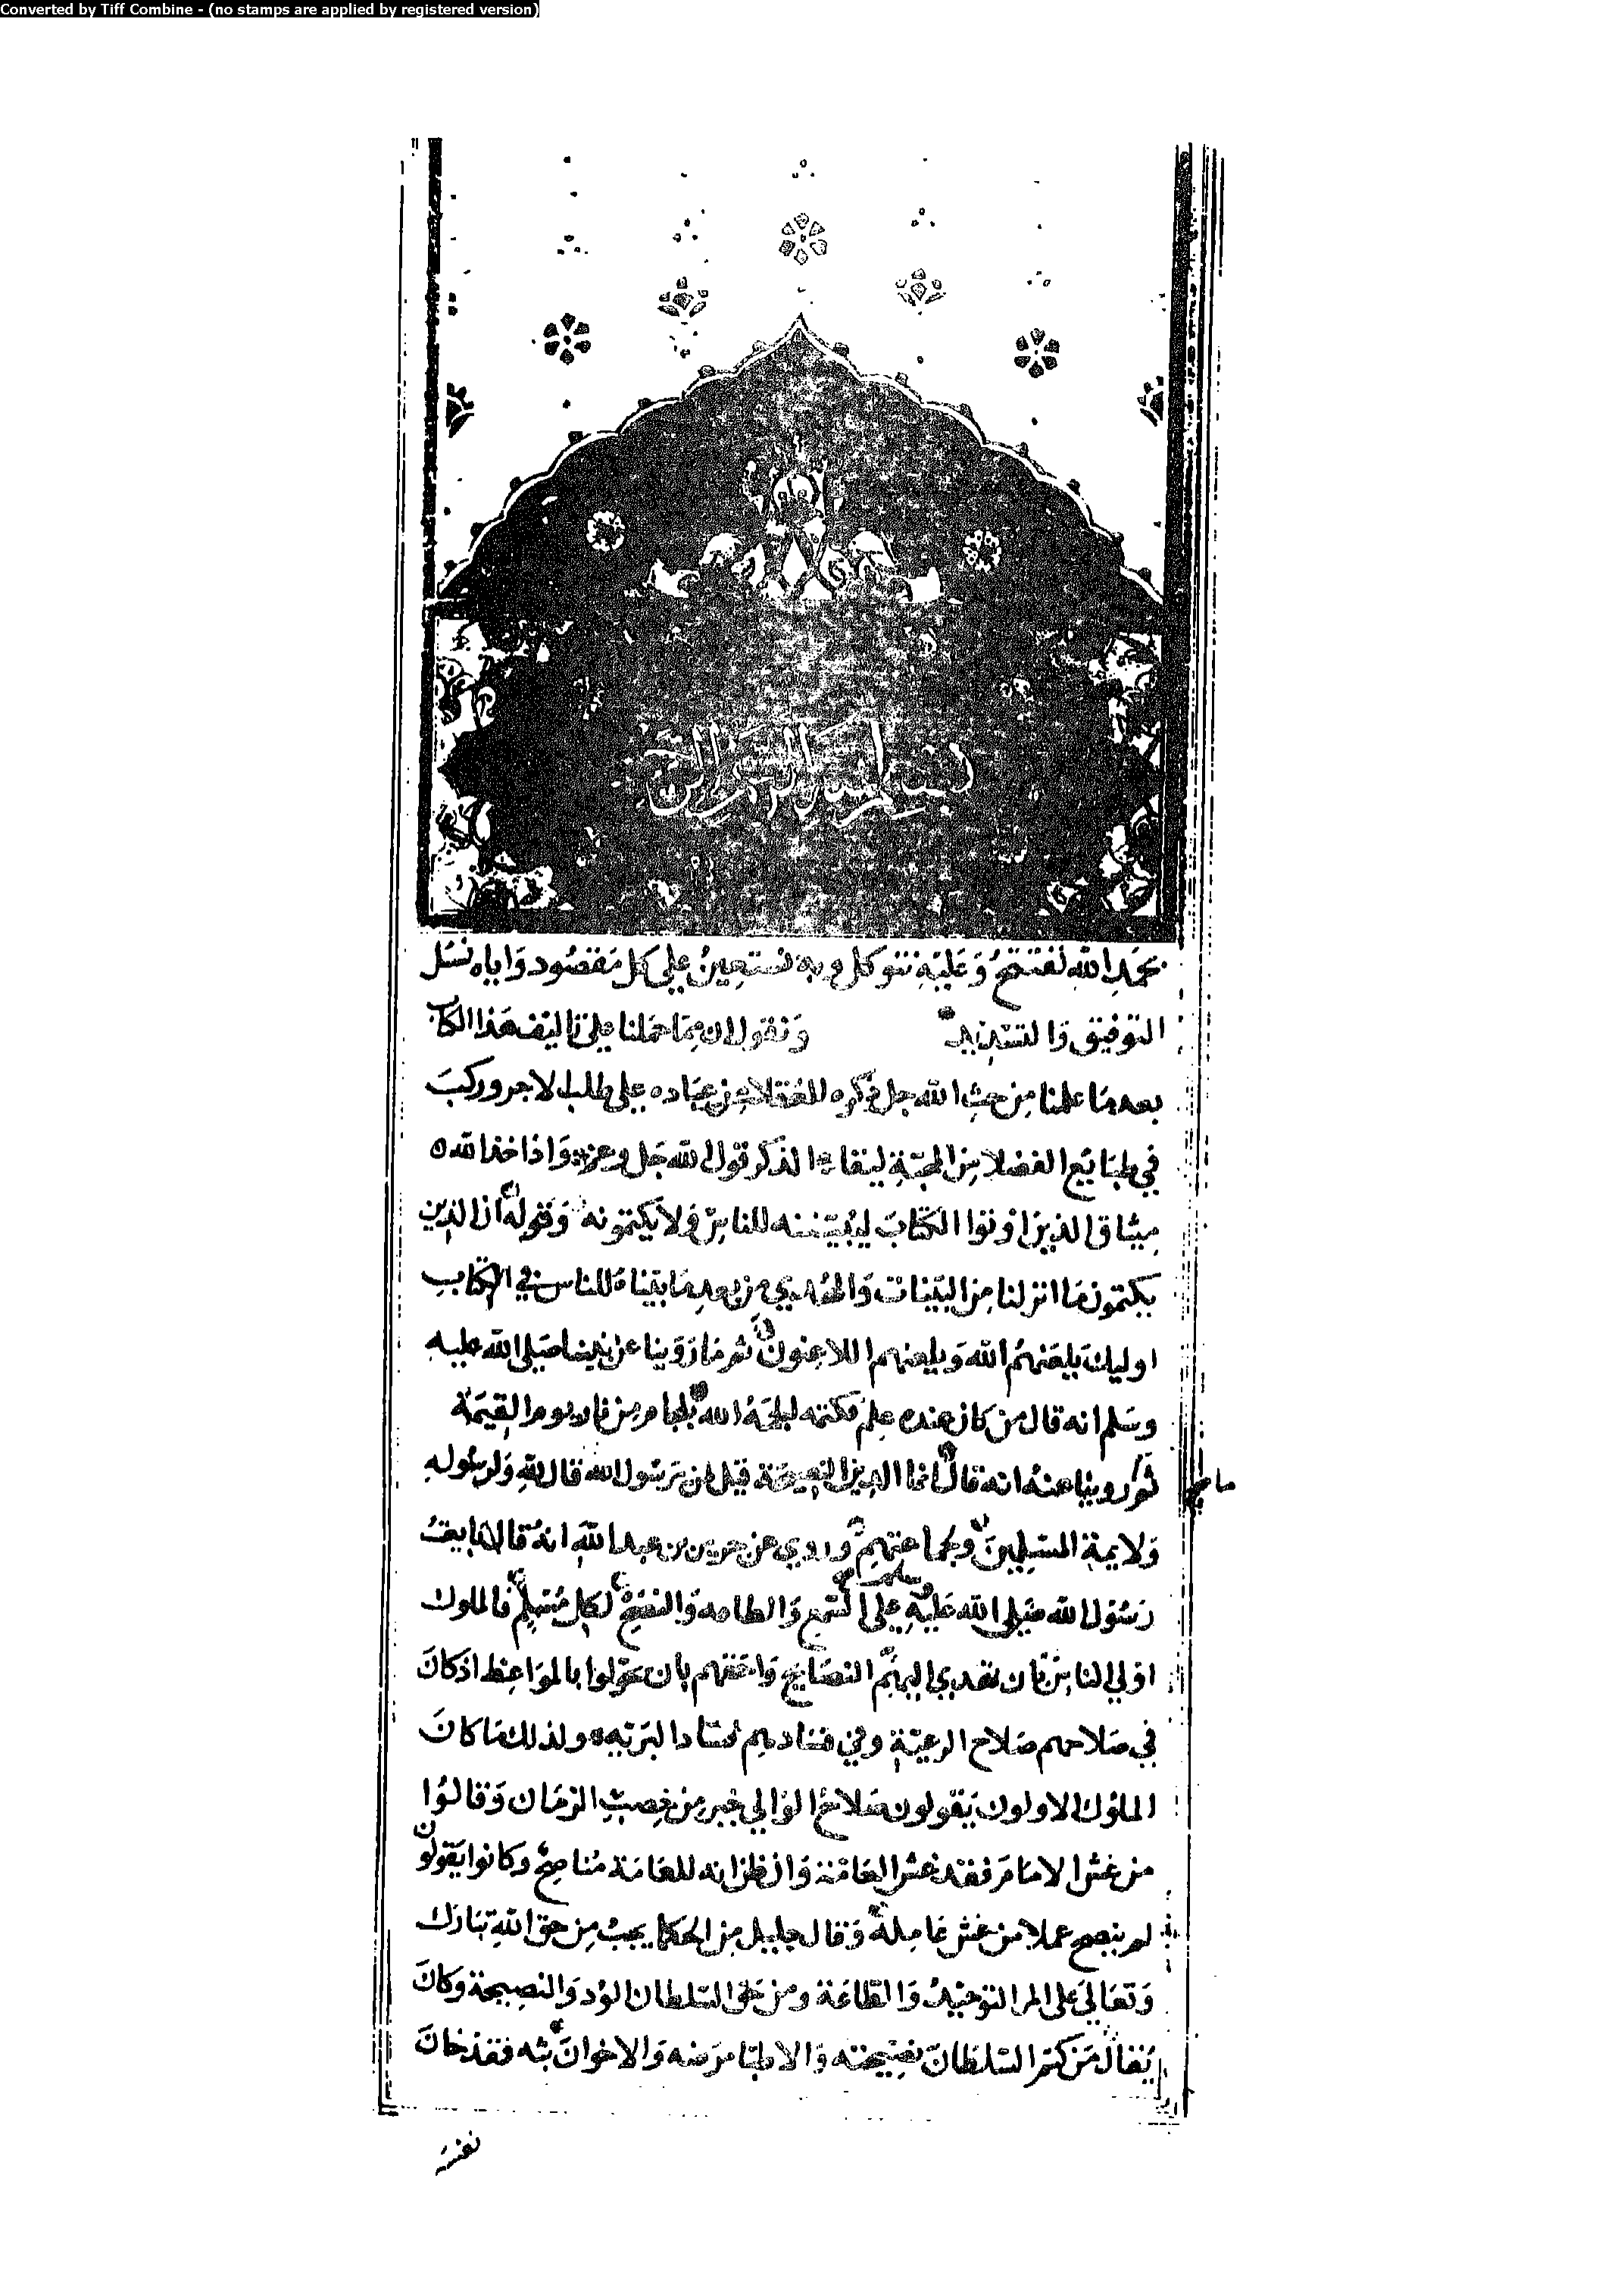 Converted by Tiff Combine - (no stamps are applied by registered version)
بسم الله الرحمن
بحمد الله نفتتح وَعَليْهِ نتوكل وبه نستعينُ علي كل مَقصُود وَاياه نسَل
التوفيق وَالتسديد وَنقول ان مِمّا حملنا علي تاليف هَذا الكتاب
بعد مَا علمنا مِن حثِ الله جل ذكره للعُقلاء من عِبَاده علي طلب الاجر وركبَ
في طبَايَع الفضلا مِن المحبّة لبقاء الذكر قول الله جَل وعز وَاذا خذ الله
ميثاق الذينَ اوتوا الكتابَ ليُبيّننه للناسِ وَلا يَكتمونه وَقوله ان الذين
يكتمون مَا انزلنا مِن البيّنات وَالهُدي من بعدِ مَا بيّناهُ للناس في الكتابِ
اوليك يلعَنهمُ الله وَيلعنهم اللاعِنون ثم مَا رَوَينا عن نبينا صَلي الله عليه
وسَلم انه قال من كان عنده عِلم فكتمه الجمَهُ الله بلجام مِن نار يوم القِيمَة
ثم روينا عنهُ انه قال انما الدين النصِيحَة قيل لمن يَرسُول الله قال للهِ وَلرسُولهِ
ما صح
وَلايمةِ المسلِمينَ وَلجماعتهم وروي عن جرير بن عبد اللهِ انهُ قال بايعتُ
رَسُول الله صَلي الله عَليْهِ وسلم علي السّمع وَالطاعه وَالنصْحِ لكلِ مُسْلِم فالملوك
اوْلي الناسِ بان تهدي اليهم النصَايح وَاحقهم بان يخوّلوا بالموَاعِظ اذ كانَ
في صَلاحهم صَلاح الرعيّةِ وفي فسَادهم فسَاد البَريّه ولذلك مَا كانَ
الملوُك الاولون يَقولون صَلاحُ الوَالي خير مِن خِصبِ الزمَان وَقالوُا
من غش الامَامَ فقد غش العَامّة وَان ظن انه للعَامَة مُناصِحٌ وكانوا يقولون
لم ينصح عملا من غش عَامِلهُ وَقال جليل مِن الحكما يجبُ مِن حق اللهِ تبارَك
وَتعَالي علي المر التوحِيْدُ وَالطاعَة ومن حَق السّلطان الوُد وَالنصِيحة وكانَ
يُقال مَن كتم السّلطانَ نصِيحته وَالاطبّا مرَضه وَالاخوانَ بثه فقد خانَ
نفسَه